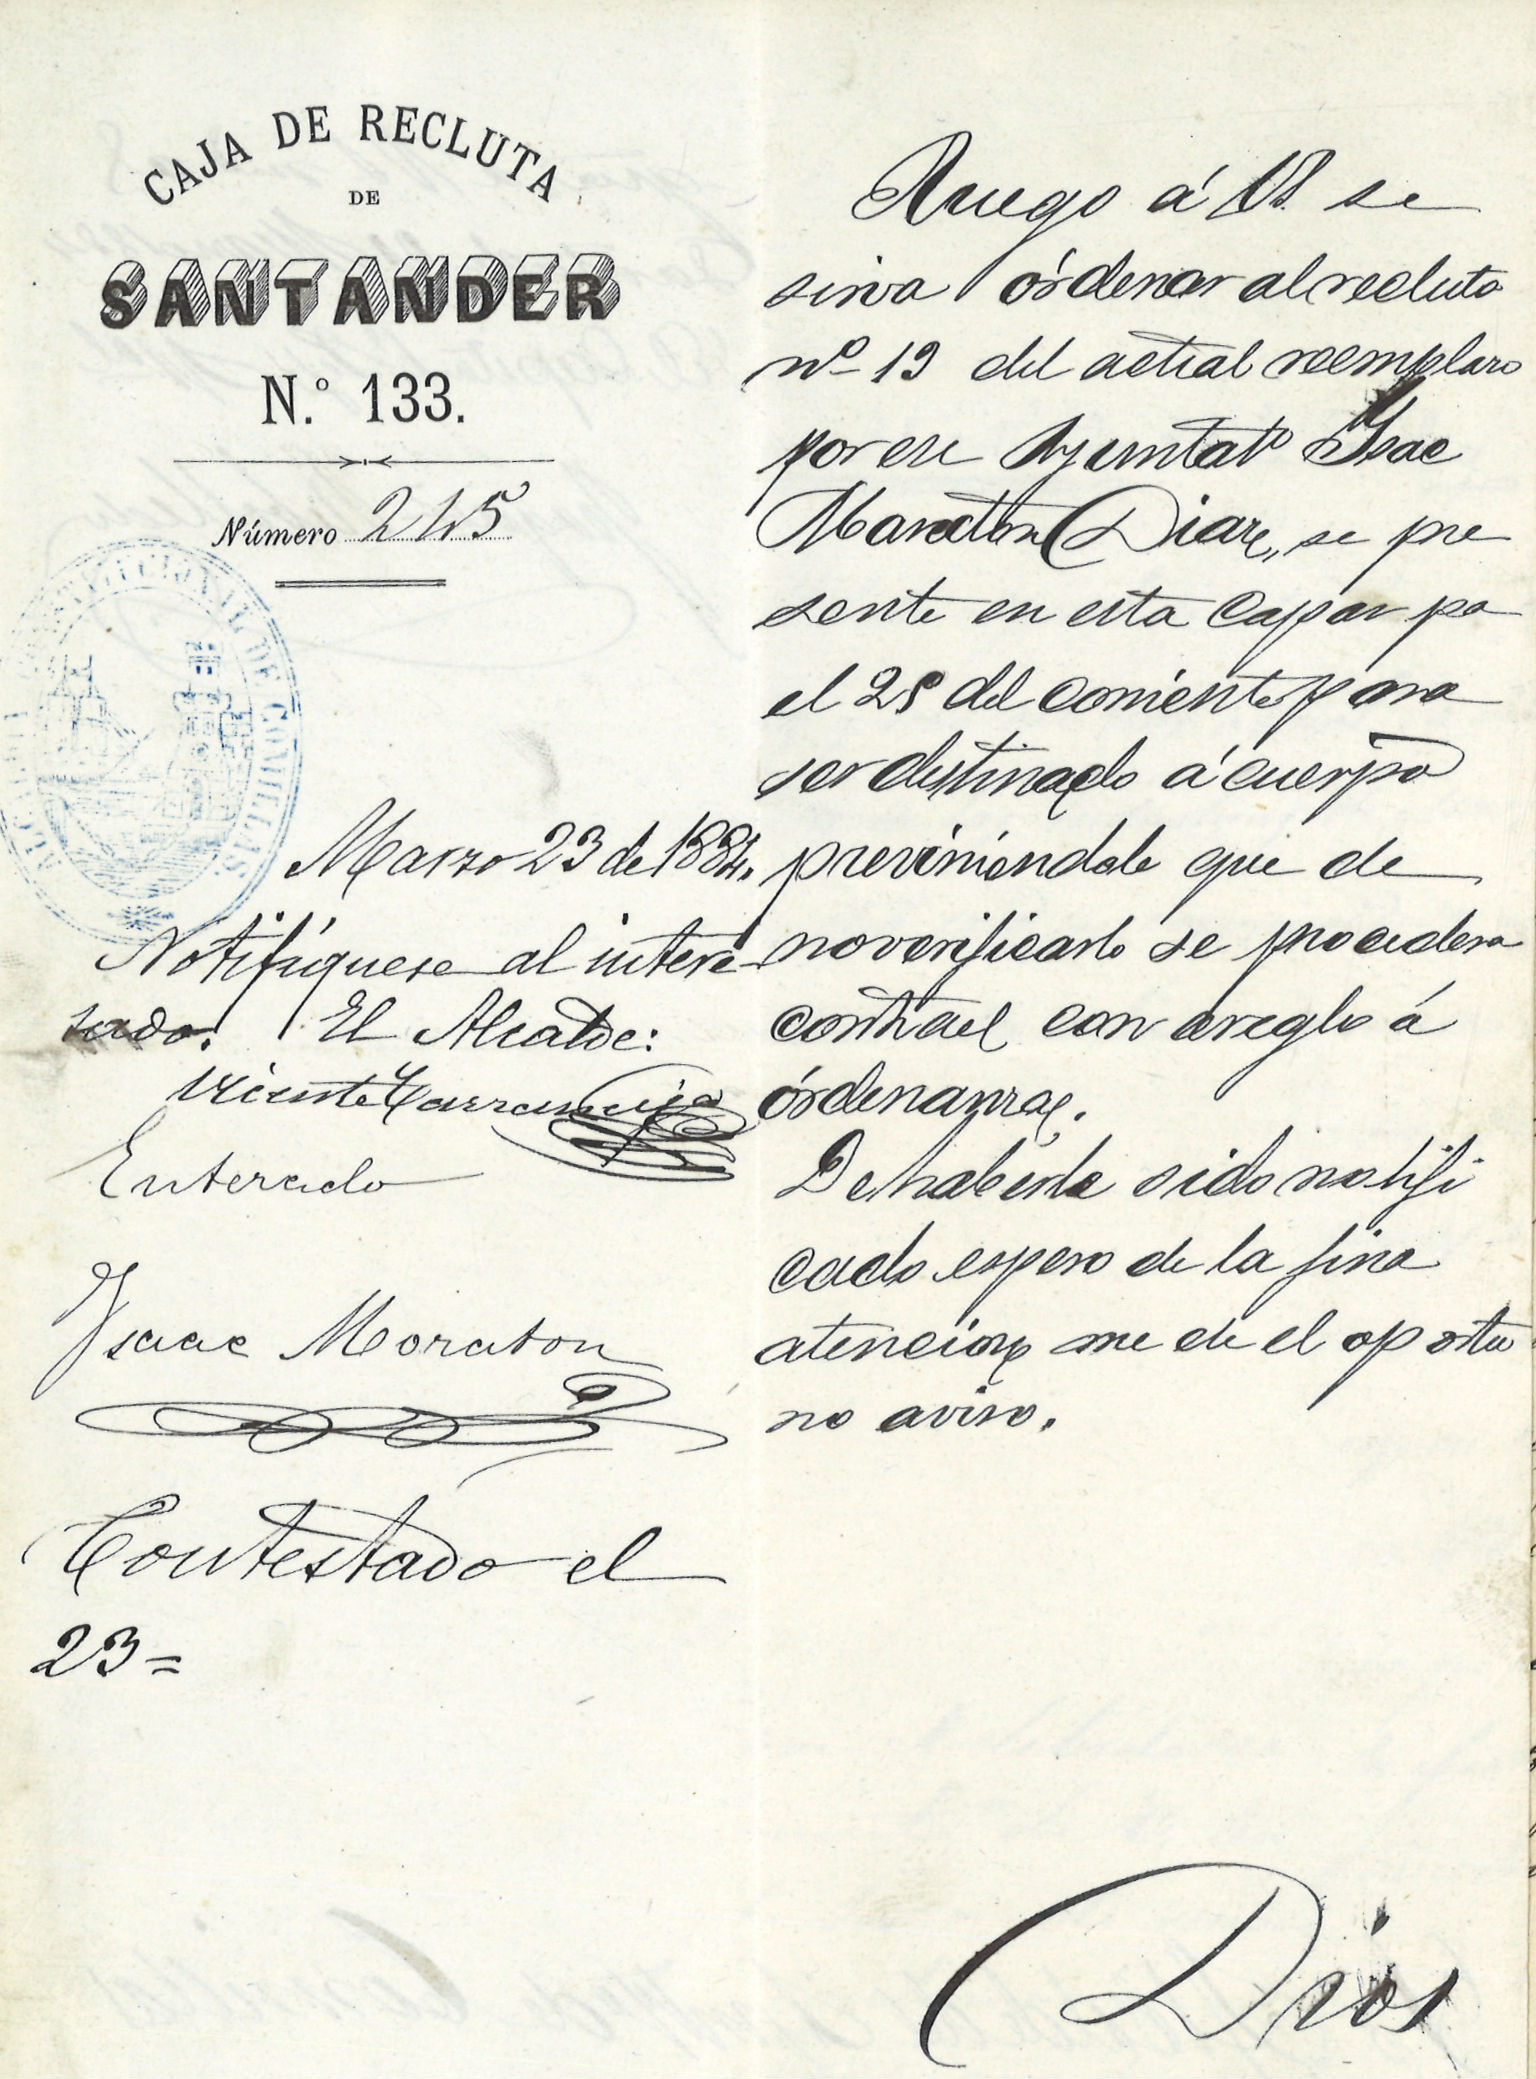 CAJA DE RECLUTA
DE
SANTANDER
N.º 133.
Número 245
Marzo 23 de 1884.
Notifíquese al intere-
sado. El Alcalde:
Vicente
Enterado
Isaac Moraton
Contestado el
23=
Ruego á V.S. se
sirva órdenar al recluta
nº 19 del actual reemplazo
por ese Ayuntatº Isac
Diaz, se pre
sente en esta pa
el 25 del corriente para
ser distinado á cuerpo
previniendole que de
no verificarlo se procedera
contra el con areglo á
órdenanzas.
De haberle sido notifi
cado espero de la fina
atencion me de el oportu
no aviso.
Dios